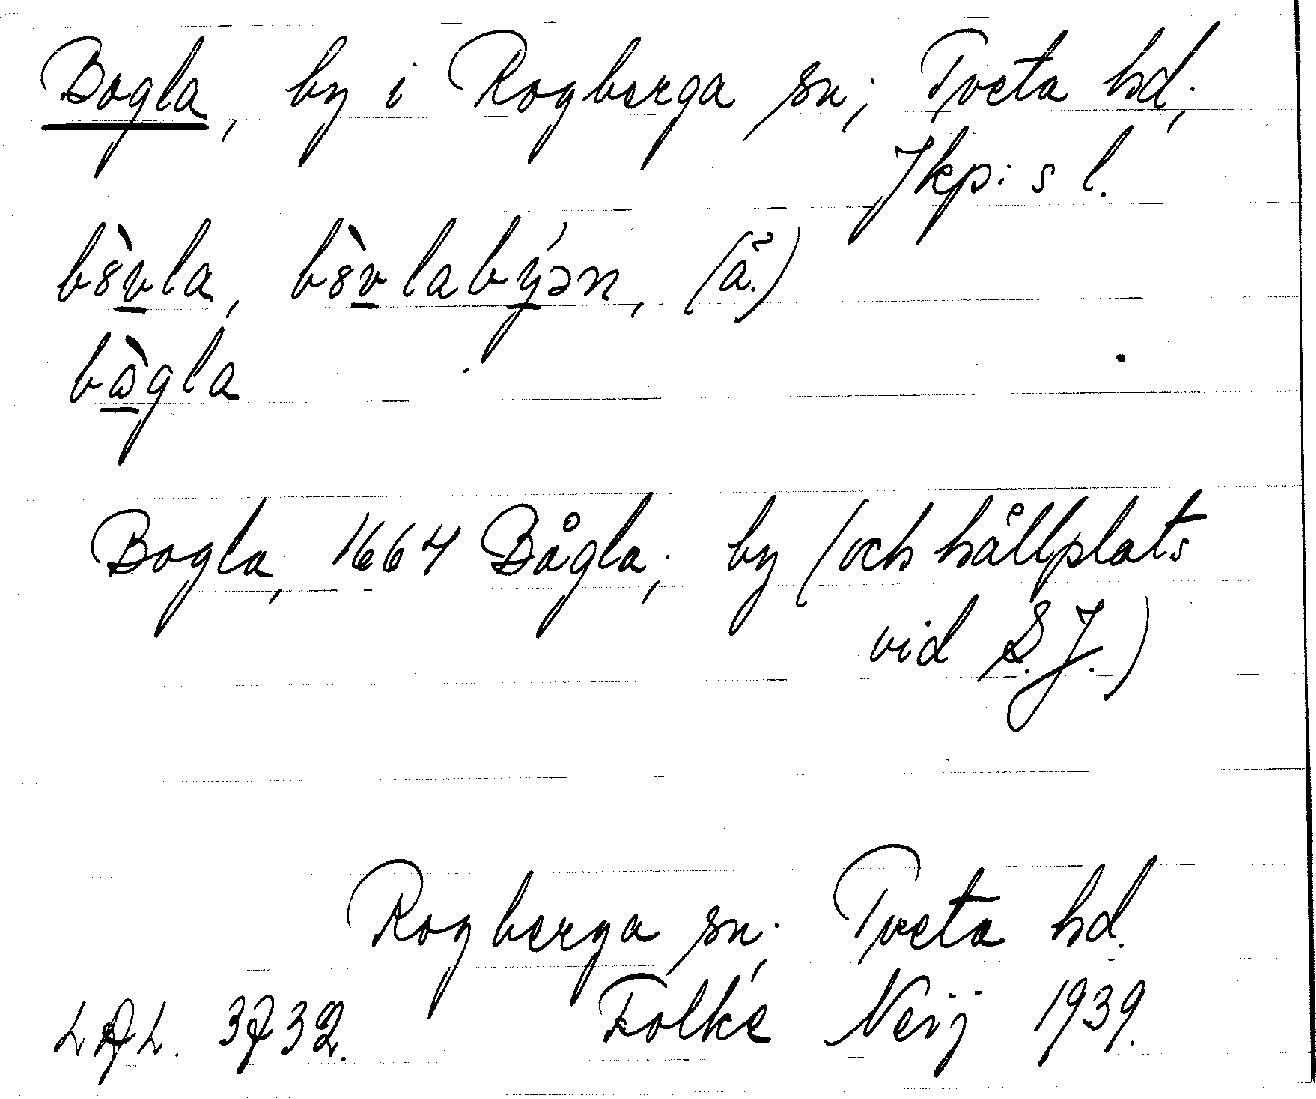 Bogla, by i Rogberga sn; Tveta hd,
Jkp:s l.
bògla
Bogla, 1664 Bågla; by (och hållplats
vid S.J.)
Rogberga sn; Tveta hd.
Folke Neij 1939.